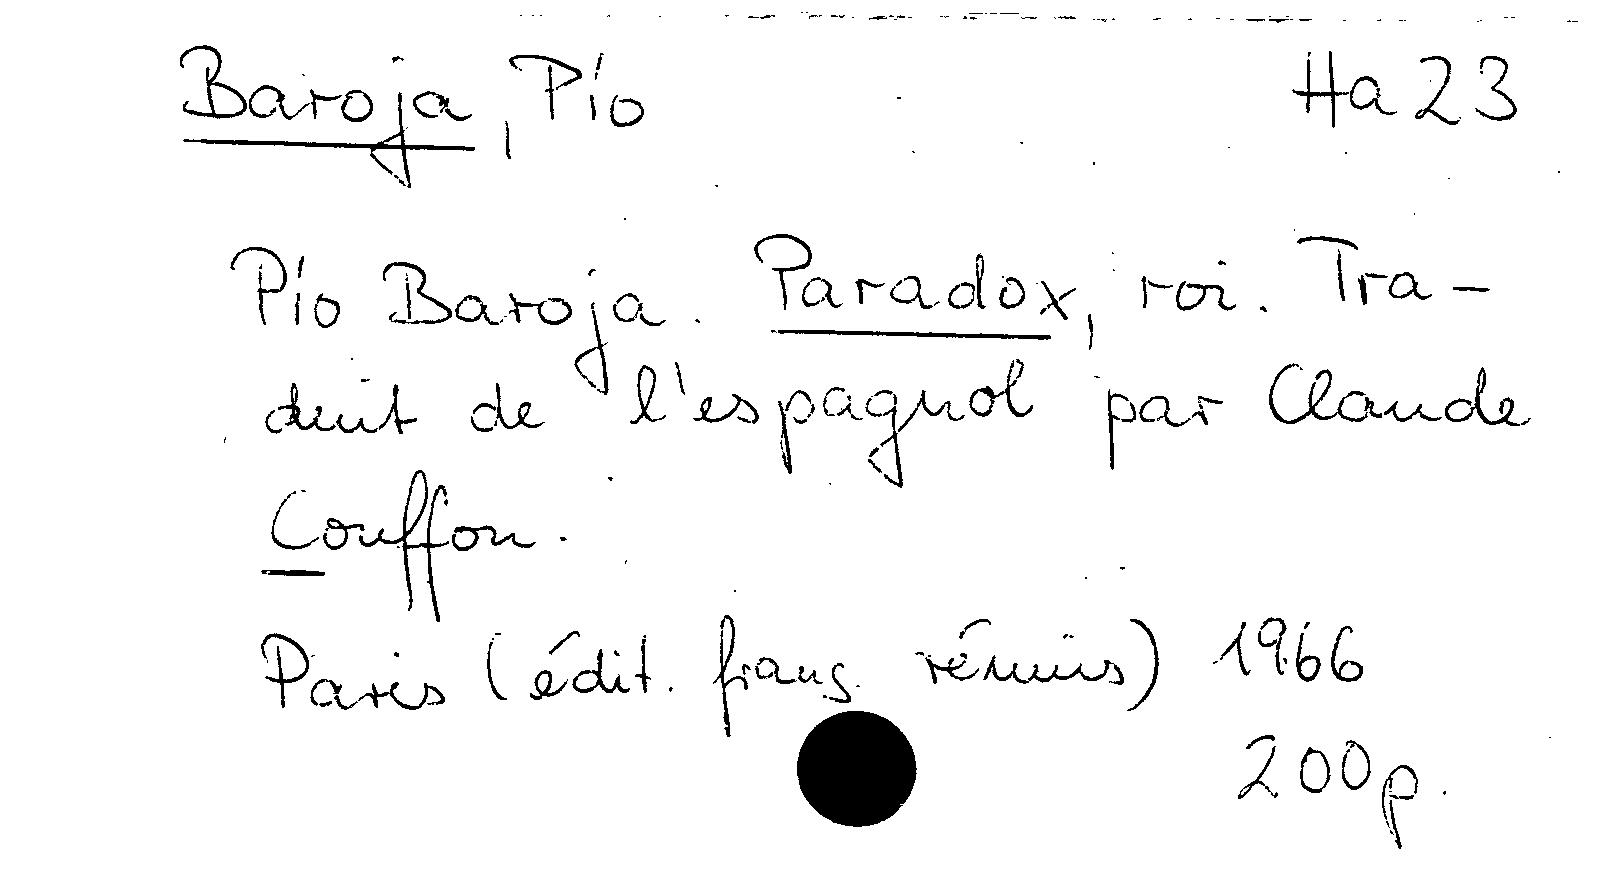 Baroja, Pío Ha 23
Pío Baroja. Paradox, roi. Tra-
duit de l'espagnol par Claude
Couffon.
Paris (édit. franç. réunis) 1966
200 p.